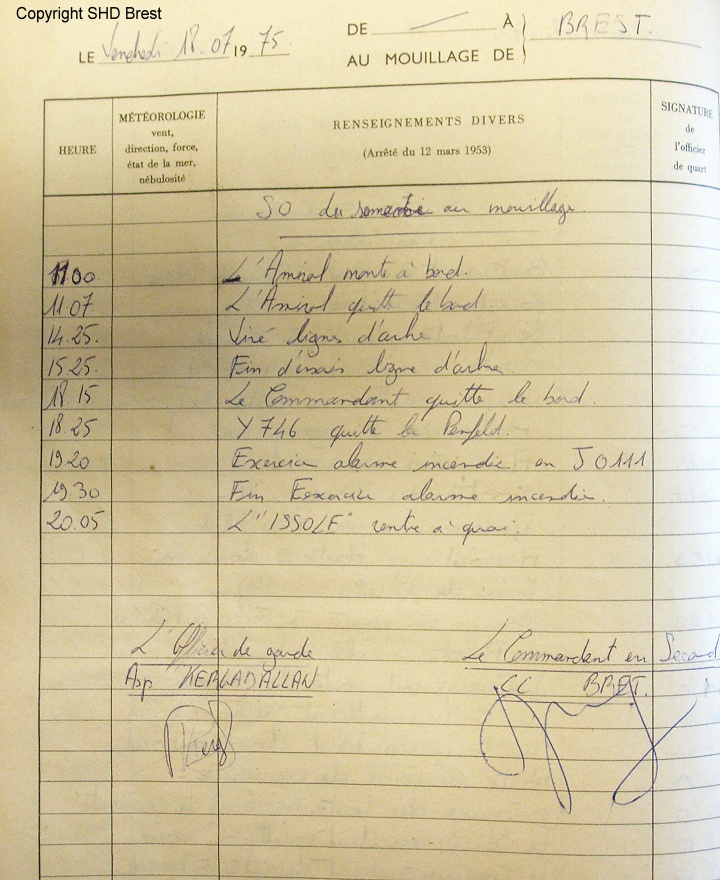 Copyright SHD Brest
LE Vendredi 18.07 1975.
DE — À } BREST.
AU MOUILLAGE DE }
HEURE
MÉTÉOROLOGIE
vent,
direction, force,
état de la mer,
nébulosité
RENSEIGNEMENTS DIVERS
(Arrêté du 12 mars 1953)
SIGNATURE
de
l'officier
de quart
SO du au mouillage.
1100 L'Amiral monte à bord.
11.07 L'Amiral quitte le bord.
14.25. Viré lignes d'arbre
15.25. Fin d'essais ligne d'arbre
18 15 Le Commandant quitte le bord.
18.25 Y746 quitte la Penfeld.
1920 Exercice alarme incendie en J0111
19.30 Fin Eexercice alarme incendie.
20.05 L'"ISSOLE" rentre à quai.
L'Officier de garde
Asp
Le Commandant en Second
CC BRET.